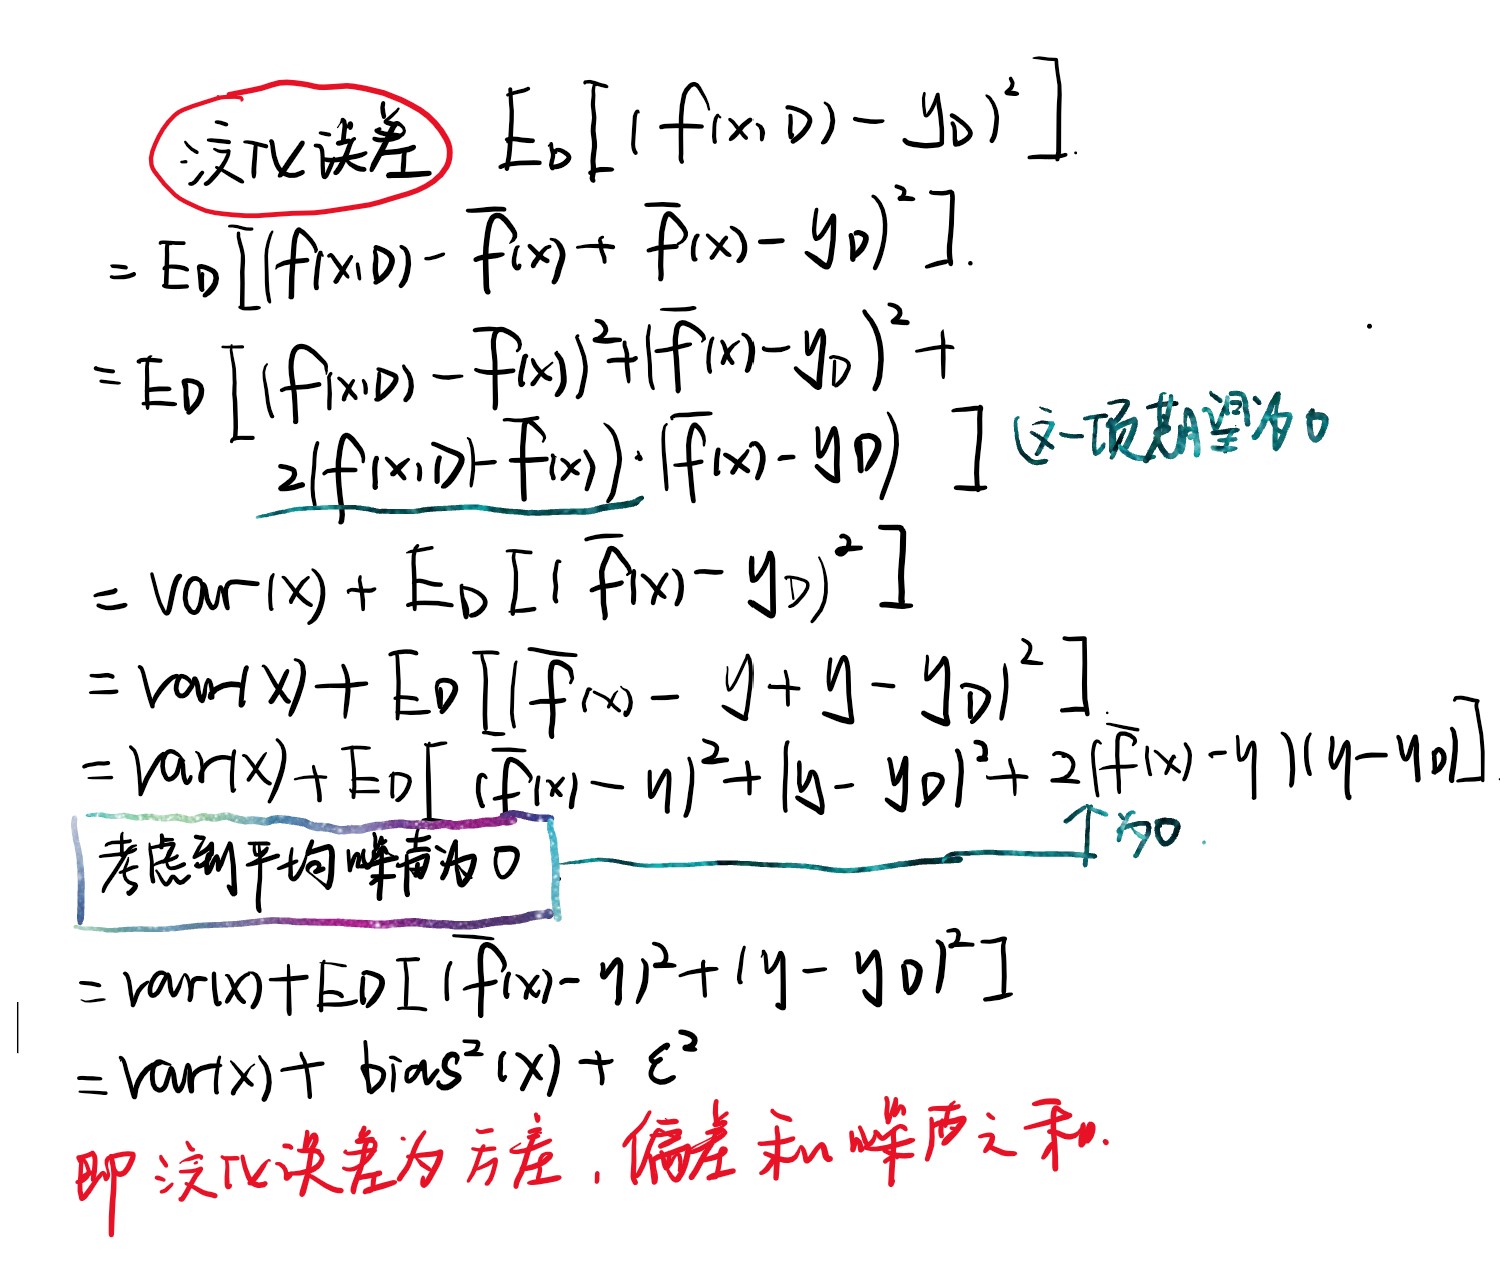 泛化误差 E_D[(f(x,D) - y_D)²].
= E_D[(f(x,D) - f̄(x) + f̄(x) - y_D)²].
= E_D[(f(x,D) - f̄(x))² + (f̄(x) - y_D)² +
2(f(x,D) - f̄(x))·(f̄(x) - y_D) ] (这一项期望为0
= var(x) + E_D[(f̄(x) - y_D)²]
= var(x) + E_D[(f̄(x) - y + y - y_D)²]
= var(x) + E_D[(f̄(x) - y)² + (y - y_D)² + 2(f̄(x) - y)(y - y_D)]
考虑到平均噪声为0 ↑为0.
= var(x) + E_D[(f̄(x) - y)² + (y - y_D)²]
= var(x) + bias²(x) + ε²
即泛化误差为方差,偏差和噪声之和.